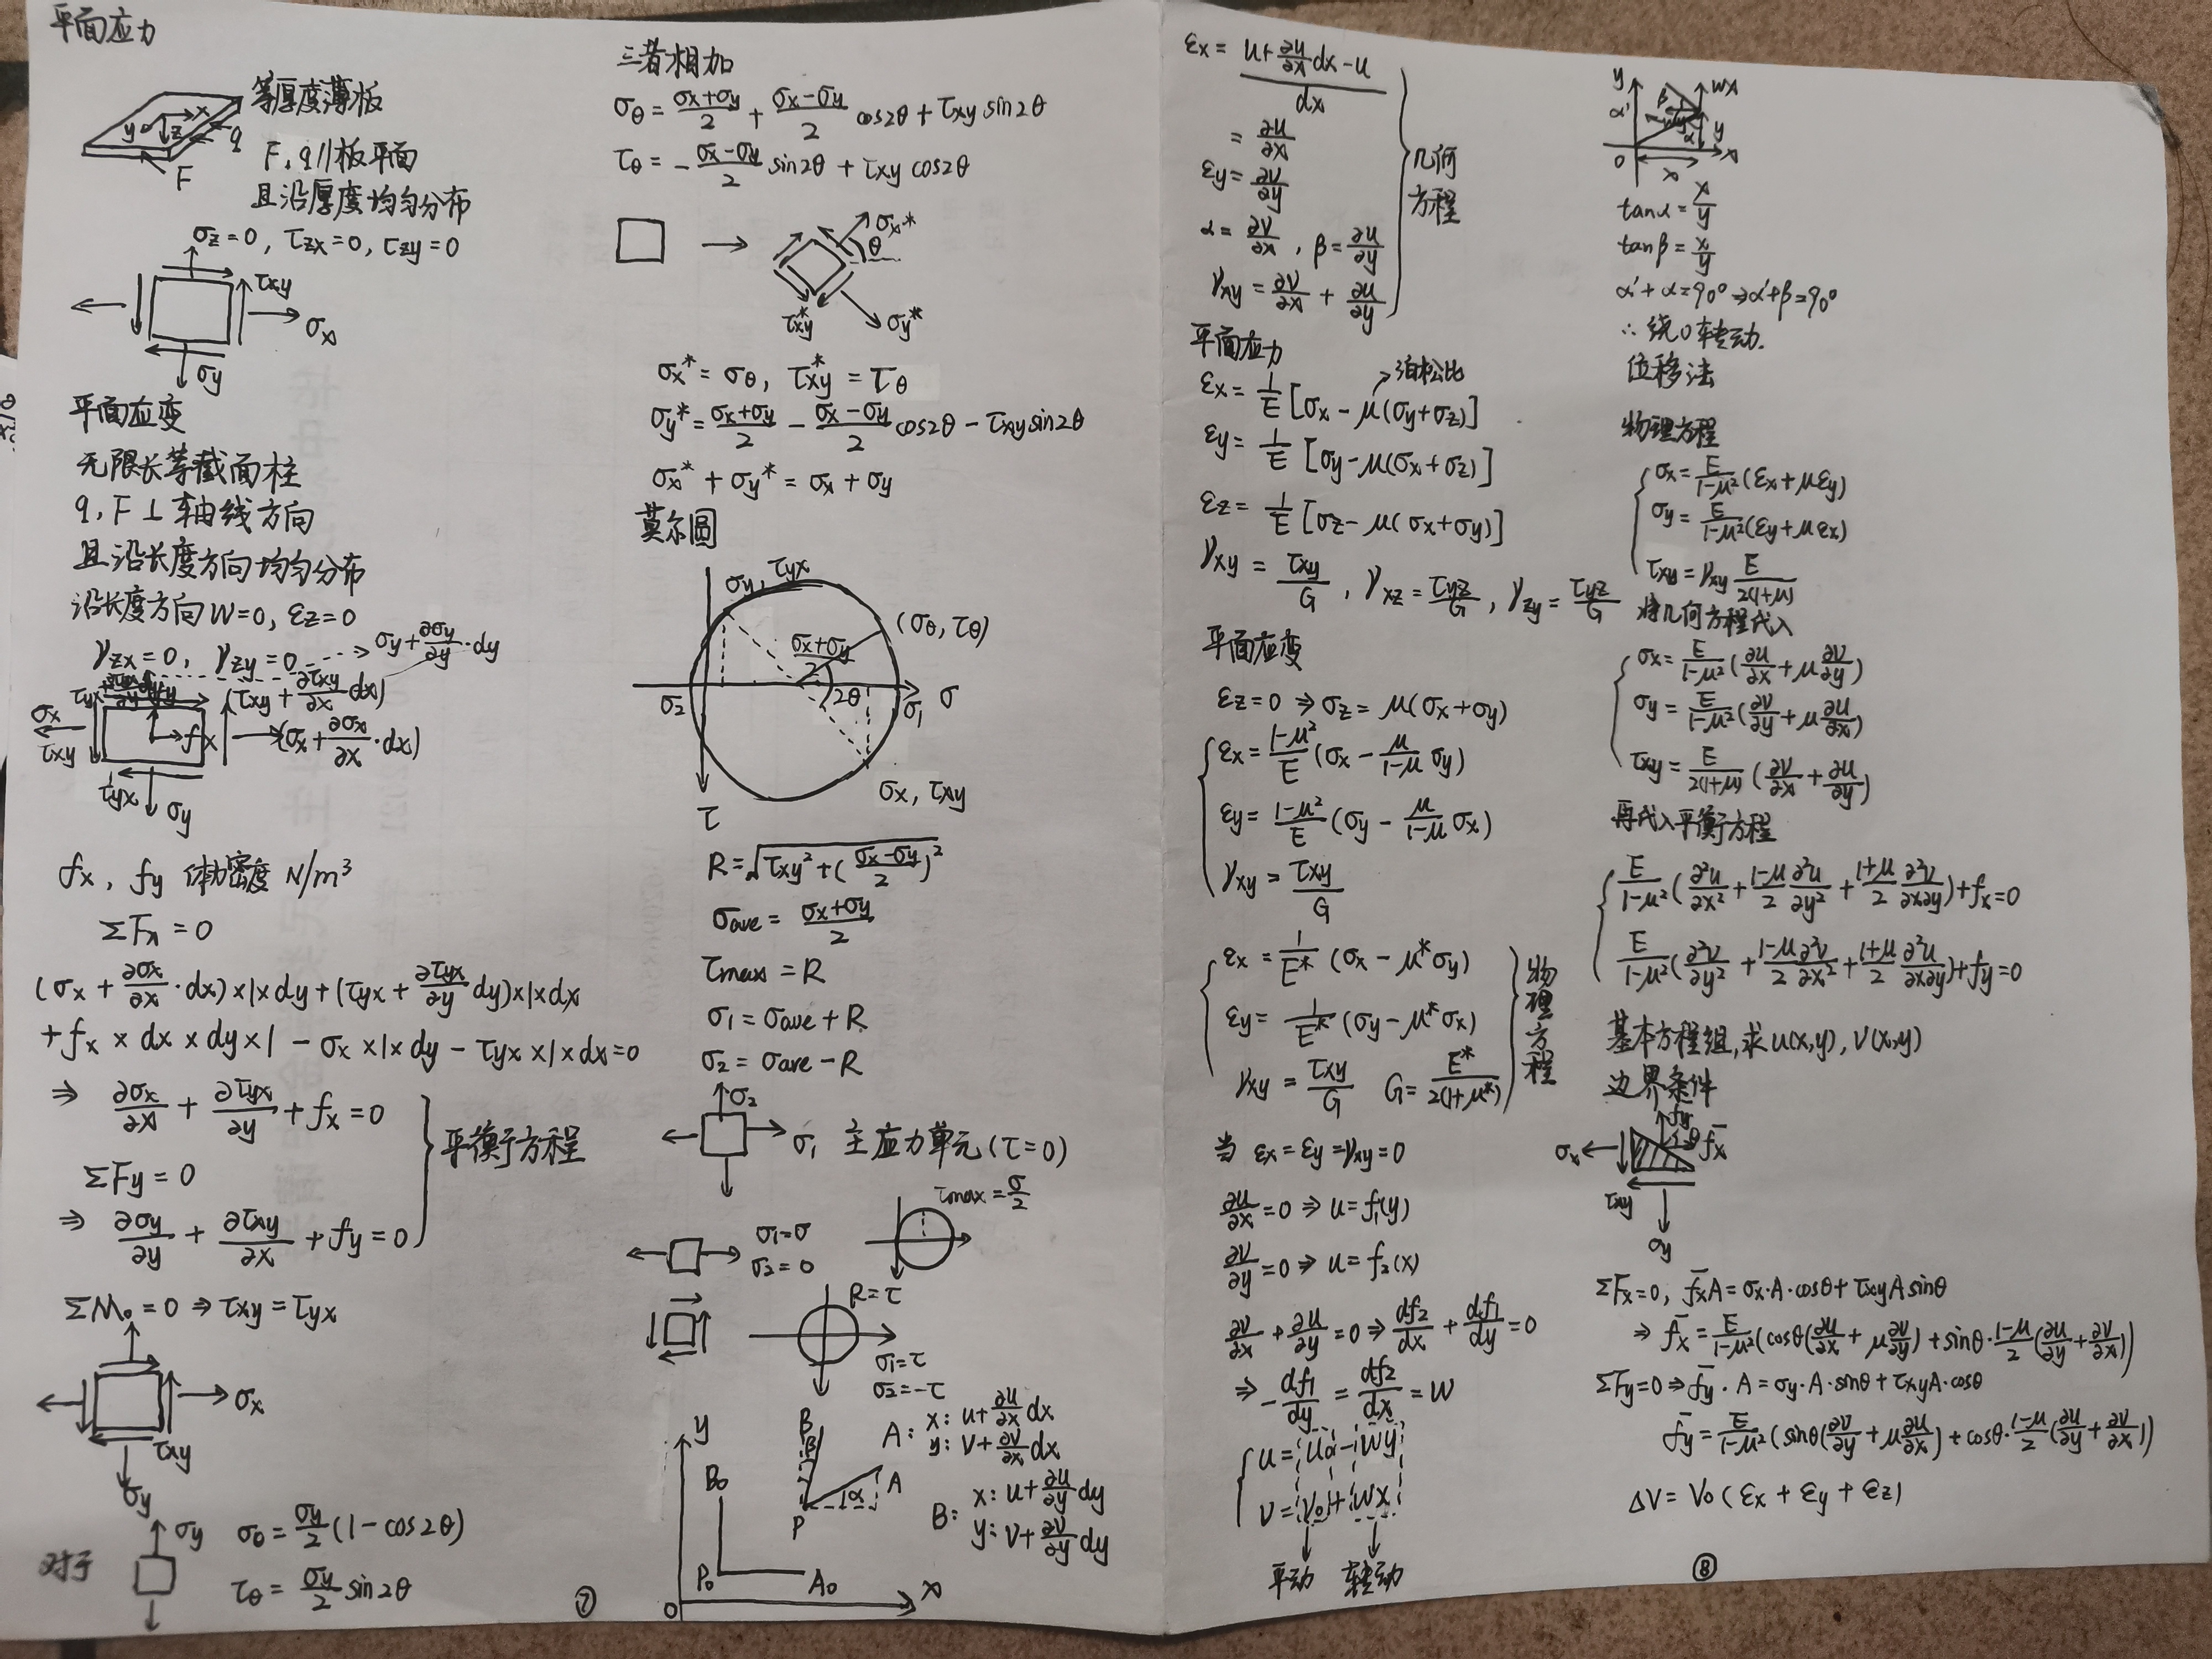 平面应力
等厚度薄板
x
y
z
q
F
F, q // 板平面
且沿厚度均匀分布
σz=0, τzx=0, τzy=0
τxy
σx
σy
平面应变
无限长等截面柱
q, F ⊥ 轴线方向
且沿长度方向均匀分布
沿长度方向W=0, εz=0
γzx=0, γzy=0
σy+∂σy/∂y·dy
(τxy+∂τxy/∂x dx)
σx
fx
(σx+∂σx/∂x·dx)
τxy
τyx
σy
fx, fy 体力密度 N/m³
ΣFx=0
(σx+∂σx/∂x·dx)×1×dy+(τyx+∂τyx/∂y dy)×1×dx
+fx×dx×dy×1-σx×1×dy-τyx×1×dx=0
⇒ ∂σx/∂x+∂τyx/∂y+fx=0
ΣFy=0
⇒ ∂σy/∂y+∂τxy/∂x+fy=0
平衡方程
ΣM₀=0 ⇒ τxy=τyx
σx
τxy
σy
对于
σy
σθ=σy/2(1-cos2θ)
τθ=σy/2 sin2θ
⑦
三者相加
σθ=(σx+σy)/2+(σx-σy)/2 cos2θ+τxy sin2θ
τθ=-(σx-σy)/2 sin2θ+τxy cos2θ
σx*
θ
τxy*
σy*
σx*=σθ, τxy*=τθ
σy*=(σx+σy)/2-(σx-σy)/2 cos2θ-τxy sin2θ
σx*+σy*=σx+σy
莫尔圆
σy, τyx
(σθ, τθ)
(σx+σy)/2
2θ
σ2
σ1
σ
σx, τxy
τ
R=√(τxy²+((σx-σy)/2)²)
σave=(σx+σy)/2
τmax=R
σ1=σave+R
σ2=σave-R
σ2
σ1 主应力单元(τ=0)
τmax=σ/2
σ1=σ
σ2=0
R=τ
σ1=τ
σ2=-τ
y
B
β
A: x: u+∂u/∂x dx
y: v+∂v/∂x dx
B0
α
A
P
B: x: u+∂u/∂y dy
y: v+∂v/∂y dy
P0
A0
O
x
εx=(u+∂u/∂x dx-u)/dx
=∂u/∂x
εy=∂v/∂y
α=∂v/∂x, β=∂u/∂y
γxy=∂v/∂x+∂u/∂y
几何方程
平面应力
→泊松比
εx=1/E[σx-μ(σy+σz)]
εy=1/E[σy-μ(σx+σz)]
εz=1/E[σz-μ(σx+σy)]
γxy=τxy/G, γxz=τyz/G, γzy=τyz/G
平面应变
εz=0 ⇒ σz=μ(σx+σy)
εx=(1-μ²)/E(σx-μ/(1-μ) σy)
εy=(1-μ²)/E(σy-μ/(1-μ) σx)
γxy=τxy/G
εx=1/E*(σx-μ*σy)
εy=1/E*(σy-μ*σx)
γxy=τxy/G G=E*/2(1+μ*)
物理方程
当 εx=εy=γxy=0
∂u/∂x=0 ⇒ u=f1(y)
∂v/∂y=0 ⇒ u=f2(x)
∂v/∂x+∂u/∂y=0 ⇒ df2/dx+df1/dy=0
⇒ -df1/dy=df2/dx=w
u=u0-wy
v=v0+wx
平动 转动
y
wx
α'
β
α
y
O
x
x
tanα=x/y
tanβ=x/y
α'+α=90°⇒α'+β=90°
∴绕O转动.
位移法
物理方程
σx=E/(1-μ²)(εx+μεy)
σy=E/(1-μ²)(εy+μεx)
τxy=γxy E/2(1+μ)
将几何方程代入
σx=E/(1-μ²)(∂u/∂x+μ∂v/∂y)
σy=E/(1-μ²)(∂v/∂y+μ∂u/∂x)
τxy=E/2(1+μ)(∂v/∂x+∂u/∂y)
再代入平衡方程
E/(1-μ²)(∂²u/∂x²+(1-μ)/2 ∂²u/∂y²+(1+μ)/2 ∂²v/∂x∂y)+fx=0
E/(1-μ²)(∂²v/∂y²+(1-μ)/2 ∂²v/∂x²+(1+μ)/2 ∂²u/∂x∂y)+fy=0
基本方程组,求u(x,y), v(x,y)
边界条件
f̄y
θ
f̄x
σx
τxy
σy
ΣFx=0, f̄xA=σx·A·cosθ+τxyAsinθ
⇒ f̄x=E/(1-μ²)(cosθ(∂u/∂x+μ∂v/∂y)+sinθ·(1-μ)/2(∂u/∂y+∂v/∂x))
ΣFy=0⇒f̄y·A=σy·A·sinθ+τxyA·cosθ
f̄y=E/(1-μ²)(sinθ(∂v/∂y+μ∂u/∂x)+cosθ·(1-μ)/2(∂u/∂y+∂v/∂x))
ΔV=V0(εx+εy+εz)
⑧